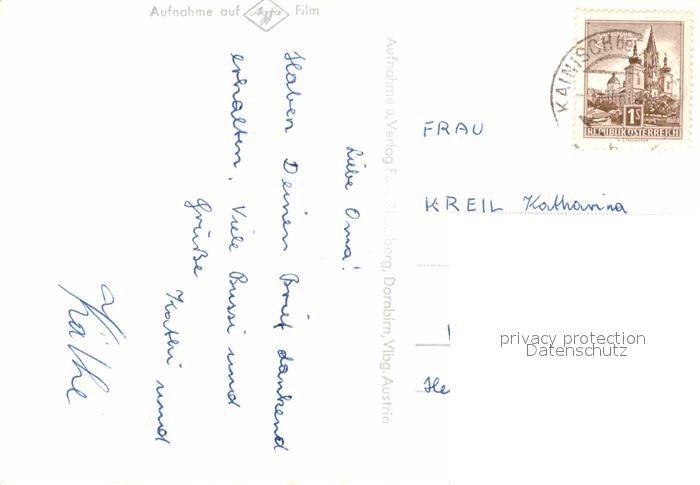 Aufnahme auf Agfa Film
Liebe Oma!
Haben Deinen Brief dankend
erhalten. Viele Bussi und
Grüße
Kathi und
Käthe
Aufnahme u. Verlag Dornbirn, Vlbg. Austria
KAINISCH
1S
REPUBLIK ÖSTERREICH
FRAU
KREIL Katharina
privacy protection
Datenschutz